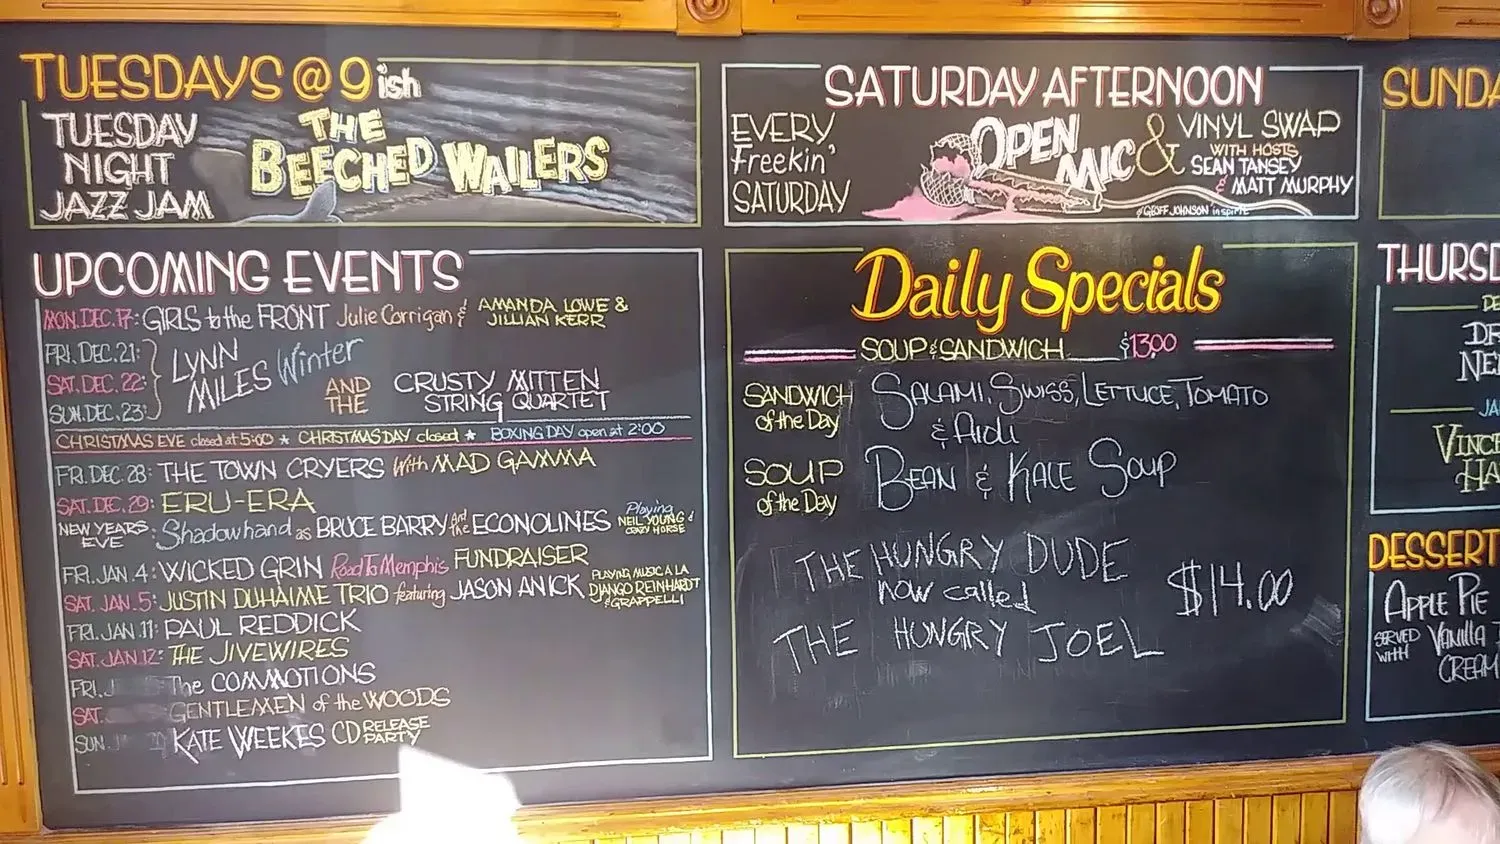 TUESDAYS @ 9 ish
TUESDAY
NIGHT
JAZZ JAM
THE
BEECHED WAILERS
UPCOMING EVENTS
MON. DEC. 17: GIRLS to the FRONT Julie Corrigan & AMANDA LOWE &
JILLIAN KERR
FRI. DEC. 21:
SAT. DEC. 22:
SUN. DEC. 23:
LYNN
MILES Winter
AND
THE
CRUSTY MITTEN
STRING QUARTET
CHRISTMAS EVE closed at 5:00 ★ CHRISTMAS DAY closed ★ BOXING DAY open at 2:00
FRI. DEC. 28: THE TOWN CRYERS With MAD GAMMA
SAT. DEC. 29: ERU-ERA
NEW YEARS
EVE : Shadowhand as BRUCE BARRY And the ECONOLINES
Playing
NEIL YOUNG &
CRAZY HORSE
FRI. JAN. 4: WICKED GRIN Road To Memphis FUNDRAISER
SAT. JAN. 5: JUSTIN DUHAIME TRIO featuring JASON ANICK
PLAYING MUSIC A LA
DJANGO REINHARDT
& GRAPPELLI
FRI. JAN. 11: PAUL REDDICK
SAT. JAN. 12: THE JIVEWIRES
FRI. J The COMMOTIONS
SAT. GENTLEMEN of the WOODS
SUN. KATE WEEKES CD RELEASE
PARTY
SATURDAY AFTERNOON
EVERY
Freekin'
SATURDAY
OPEN
MIC &
VINYL SWAP
WITH HOSTS
SEAN TANSEY
& MATT MURPHY
GEOFF JOHNSON
Daily Specials
SOUP & SANDWICH $13.00
SANDWICH
of the Day
SALAMI, SWISS, LETTUCE, TOMATO
& Aioli
SOUP
of the Day
BEAN & KALE SOUP
THE HUNGRY DUDE
now called
THE HUNGRY JOEL
$14.00
SUNDA
THURSD
DE
DR
NE
JA
VINCE
HA
DESSERT
APPLE PIE
SERVED
WITH
VANILLA
CREAM